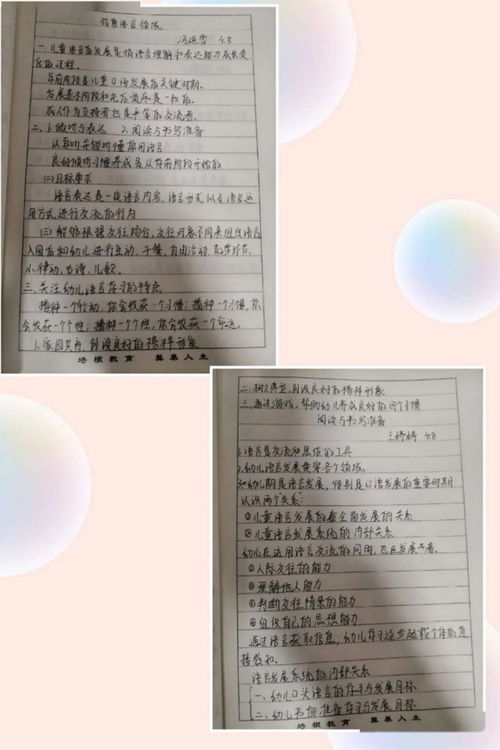 指南语言领域
冯延雪 4.3
一、儿童语言的发展是指语言理解和表达能力成长变
化的过程。
学前阶段是儿童口语发展的关键时期。
发展基本阶段和先后顺序是一致的。
成人作为支持者也是平等的交流者。
二、1.倾听与表达 2.阅读与书写准备
认真听并能听懂常用语言
良好倾听习惯养成是从学前阶段开始的
(二)目标要求
语言表达是一定语言内容、语言形式以及语言运
用方式进行交流的行为
(三)能够根据交往场合、交往对象不同来组织语言
入园后和幼儿进行互动,午餐、自由活动、教学环节、
小律动、古诗、儿歌。
三、关注幼儿语言学习的特点
播种一个行动,你会收获一个习惯;播种一个习惯,你
会收获一个个性;播种一个个性,你会收获一个命运。
1.家园共育,创设良好的榜样形象
培根教育 奠基人生
二、树立典型,创设良好的榜样形象
三、通过游戏,帮助幼儿养成良好的习惯
阅读与书写准备
王婷婷 4.8
1.语言是交流和思维的工具
2.幼儿语言发展贯穿各个领域。
3.幼儿期是语言发展,特别是口语发展的重要时期
认识两个"关系":
①儿童语言发展的整全面发展的关系
②儿童语言发展系统的内部关系
幼儿在运用语言交流的同时,也在发展着。
①人际交往的能力
②理解他人能力
③判断交往情景的能力
④组织自己的思想能力
通过语言获取信息,幼儿学习逐步超越个体的直
接感知。
语言发展系统的内部关系
一、幼儿口头语言的学习与发展目标
二、幼儿书面准备学习与发展目标
培根教育 奠基人生